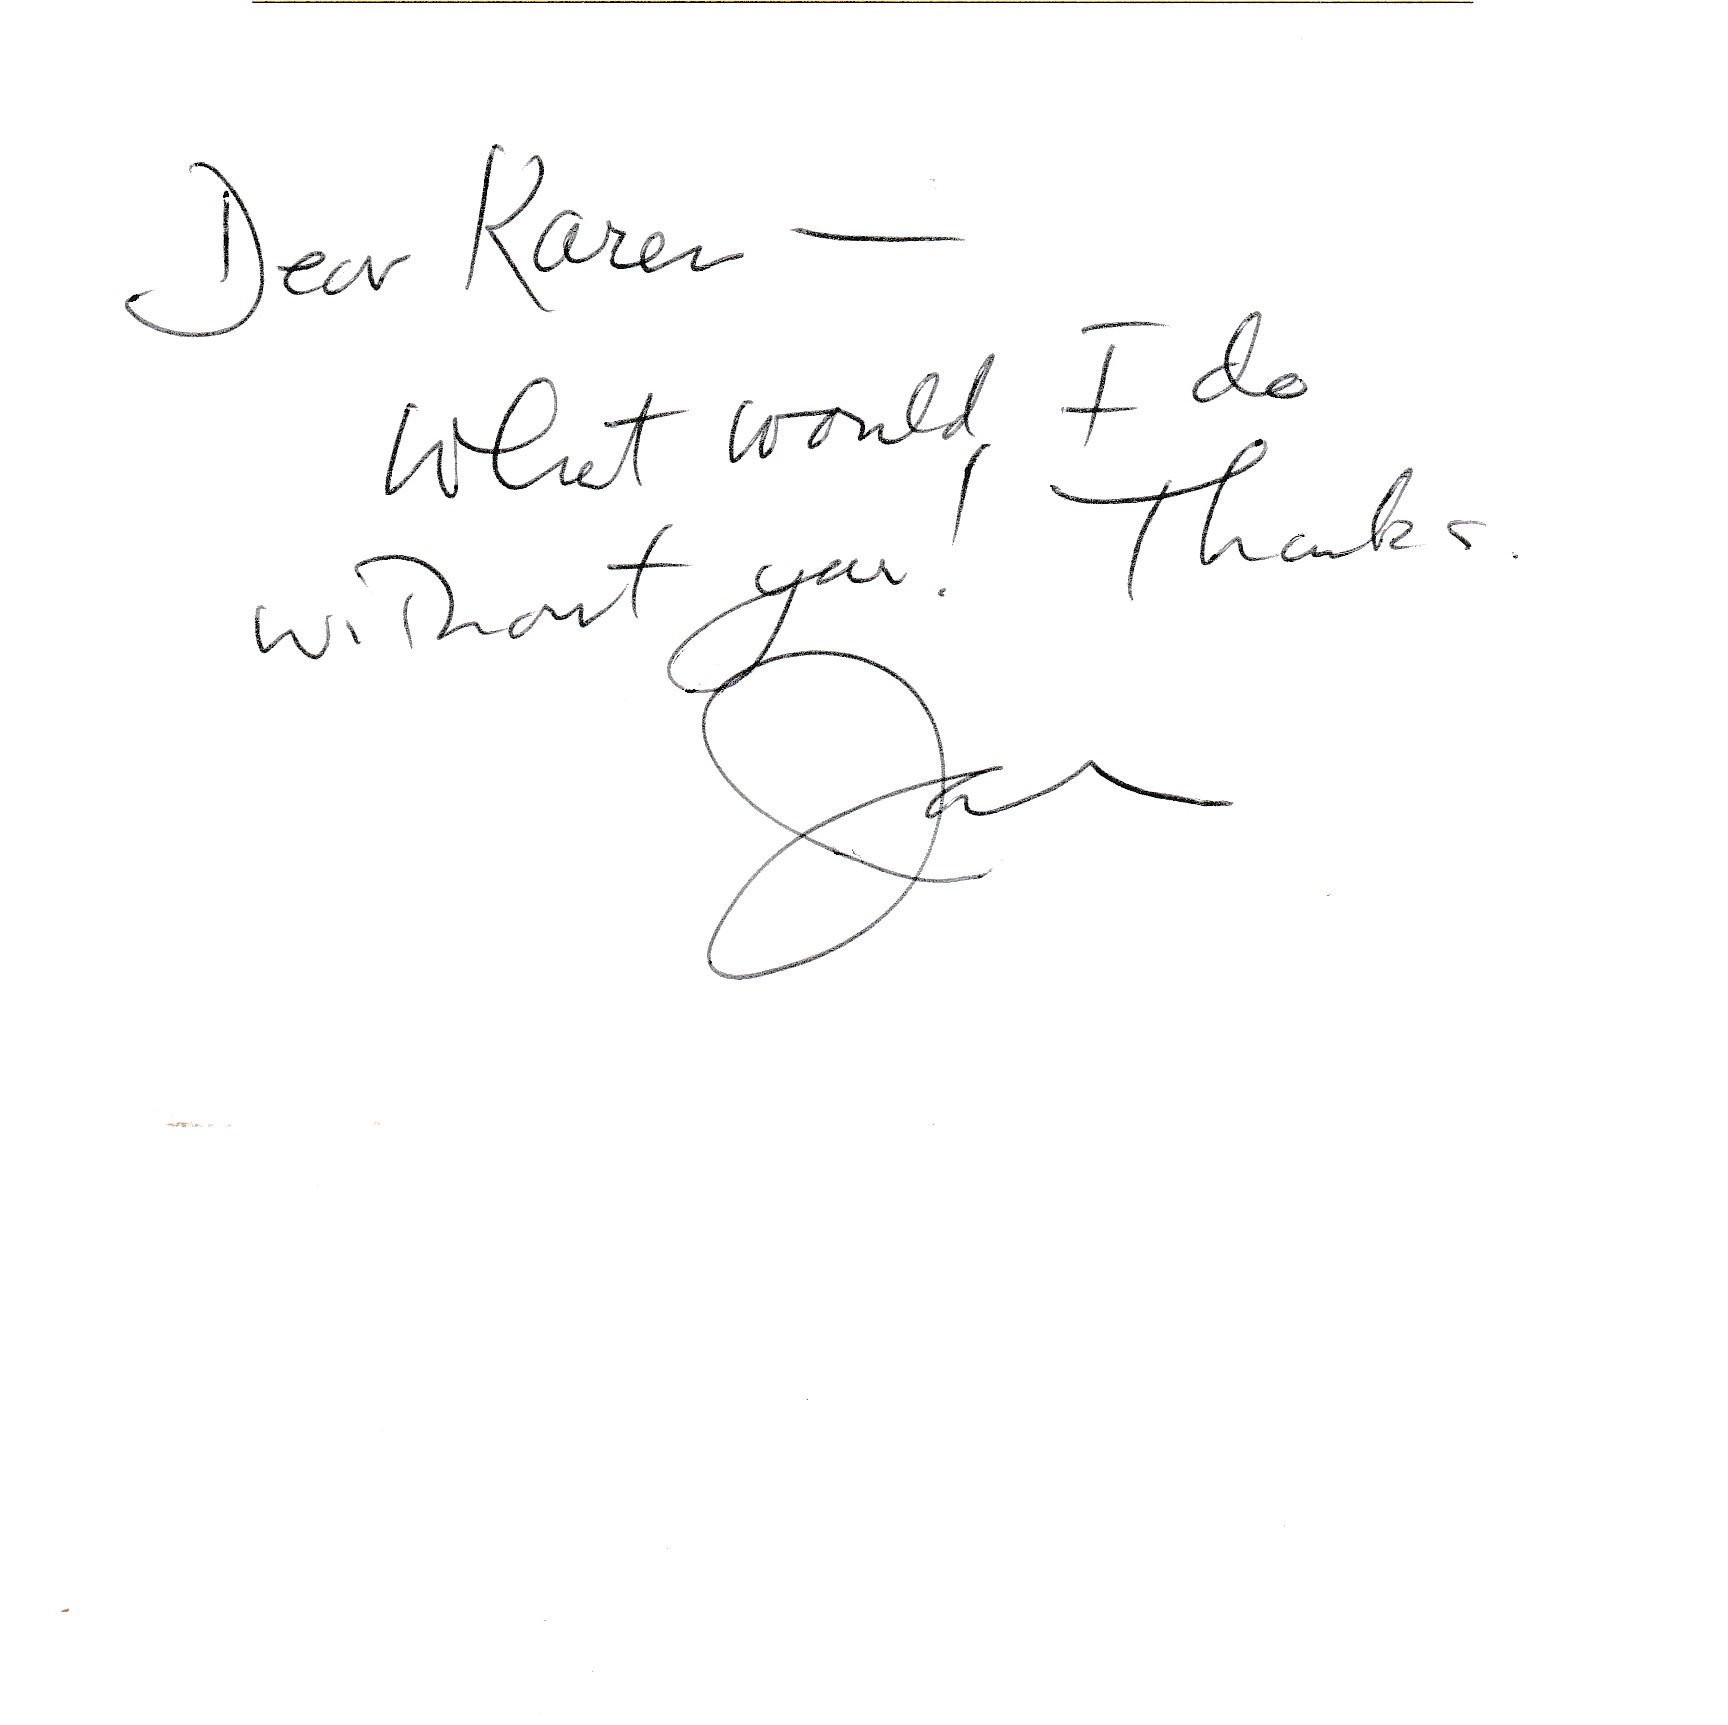 Dear Karen —
What would I do
without you! Thanks.
Jan